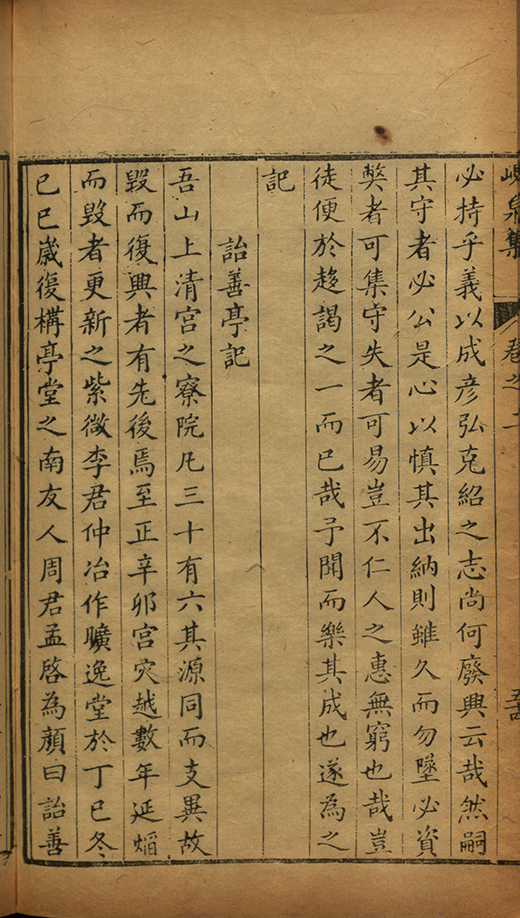 峴泉集 卷之二
必持乎義以成彦弘克紹之志尚何廢興云哉然嗣
其守者必公是心以慎其出納則雖久而勿墜必資
獘者可集守失者可易豈不仁人之惠無窮也哉豈
徒便於趍謁之一而已哉予聞而樂其成也遂為之
記
詒善亭記
吾山上清宮之寮院凡三十有六其源同而支異故
毀而復興者有先後焉至正辛卯宮灾越數年延熖
而毀者更新之紫微李君仲冶作曠逸堂於丁巳冬
已巳歲復構亭堂之南友人周君孟啓為顔曰詒善